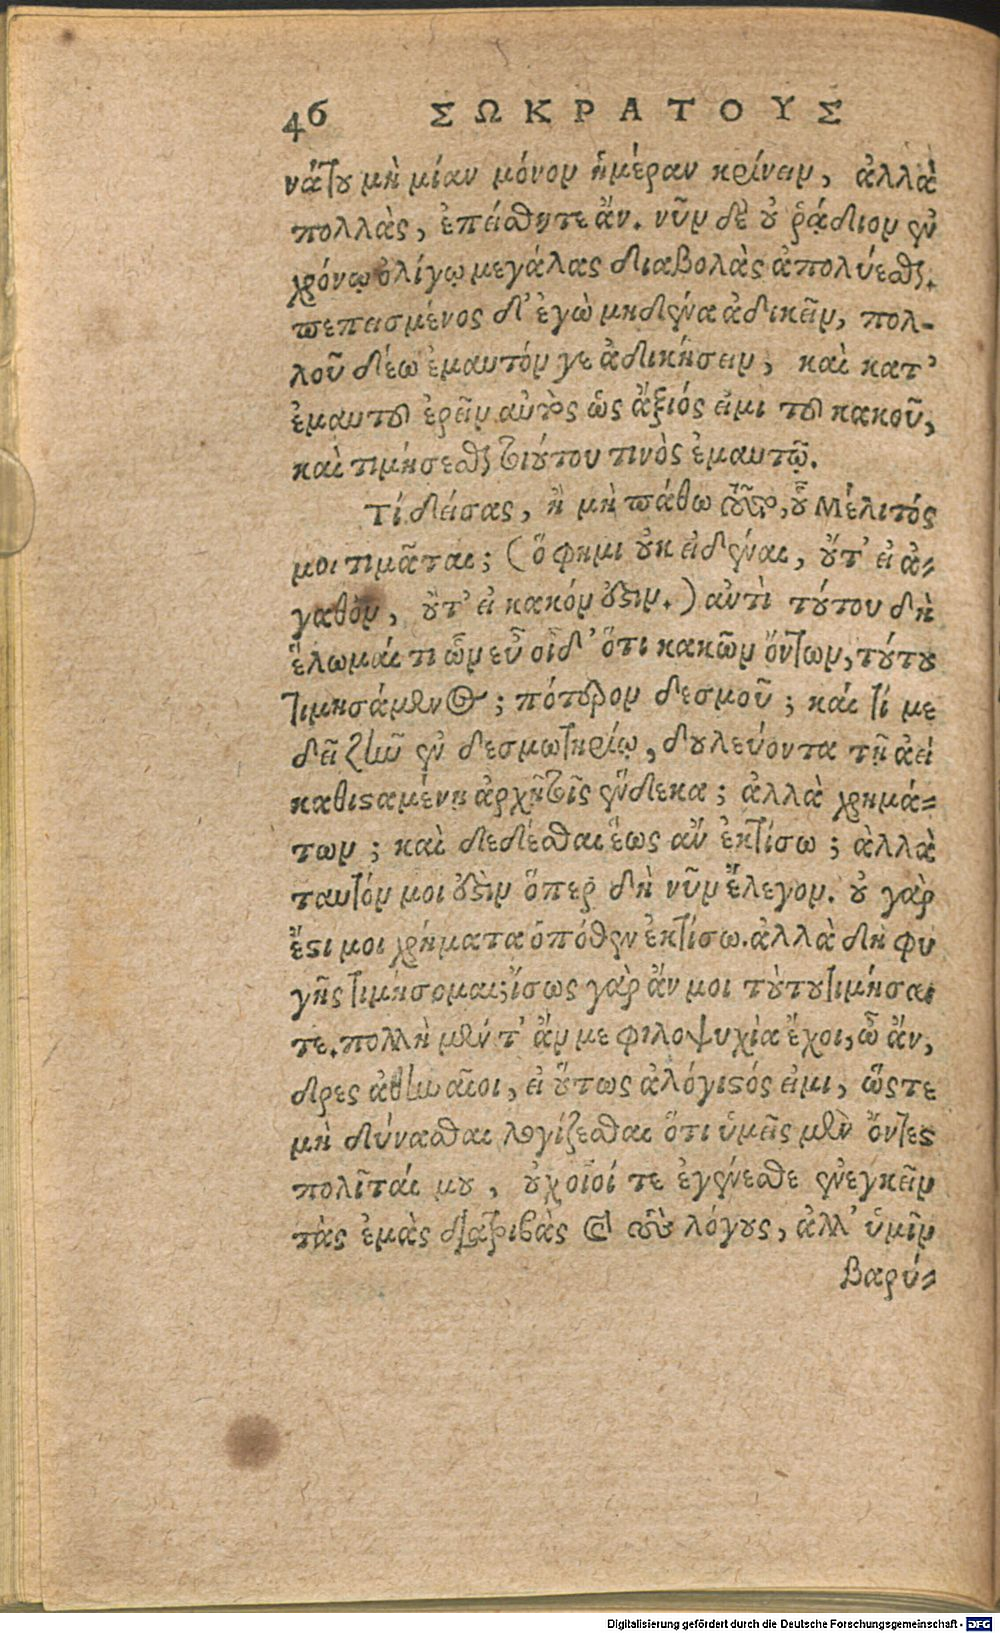 46 ΣΩΚΡΑΤΟΥΣ
νάτου μὴ μίαν μόνον ἡμέραν κρίνειν, ἀλλὰ
πολλὰς, ἐπείσθητε ἄν. νῦν δὲ οὐ ῥᾴδιον ἐν
χρόνῳ ὀλίγῳ μεγάλας διαβολὰς ἀπολύεσθαι.
πεπεισμένος δ' ἐγὼ μηδένα ἀδικεῖν, πολ-
λοῦ δέω ἐμαυτόν γε ἀδικήσειν, καὶ κατ'
ἐμαυτοῦ ἐρεῖν αὐτὸς ὡς ἄξιός εἰμι του κακοῦ,
καὶ τιμήσεσθαι τοιούτου τινὸς ἐμαυτῷ.
Τί δείσας, ἢ μὴ πάθω τοῦτο, οὗ Μέλιτός
μοι τιμᾶται; (ὅ φημι οὐκ εἰδέναι, οὔτ' εἰ ἀ-
γαθὸν, οὔτ' εἰ κακόν ἐστιν.) ἀντὶ τούτου δὴ
ἕλωμαί τι ὧν εὖ οἶδ' ὅτι κακῶν ὄντων, τούτου
τιμησάμενος; πότερον δεσμοῦ; καί τί με
δεῖ ζῆν ἐν δεσμωτηρίῳ, δουλεύοντα τῇ ἀεὶ
καθισταμένῃ ἀρχῇ τοῖς ἕνδεκα; ἀλλὰ χρημά-
των; καὶ δεδέσθαι ἕως ἂν ἐκτίσω; ἀλλὰ
ταυτόν μοι ἐστὶν ὅπερ δὴ νῦν ἔλεγον. οὐ γὰρ
ἔστι μοι χρήματα ὁπόθεν ἐκτίσω. ἀλλὰ δὴ φυ
γῆς τιμήσομαι; ἴσως γὰρ ἄν μοι τούτου τιμήσαι
τε. πολλὴ μέν τ' ἄν με φιλοψυχία ἔχοι, ὦ ἄν,
δρες ἀθηναῖοι, εἰ οὕτως ἀλόγιστός εἰμι, ὥστε
μὴ δύνασθαι λογίζεσθαι ὅτι ὑμεῖς μὲν ὄντες
πολῖταί μου, οὐχ οἷοί τε ἐγένεσθε ἐνεγκεῖν
τὰς ἐμὰς διατριβὰς καὶ τοὺς λόγους, ἀλλ' ὑμῖν
βαρύ-
Digitalisierung gefördert durch die Deutsche Forschungsgemeinschaft - DFG